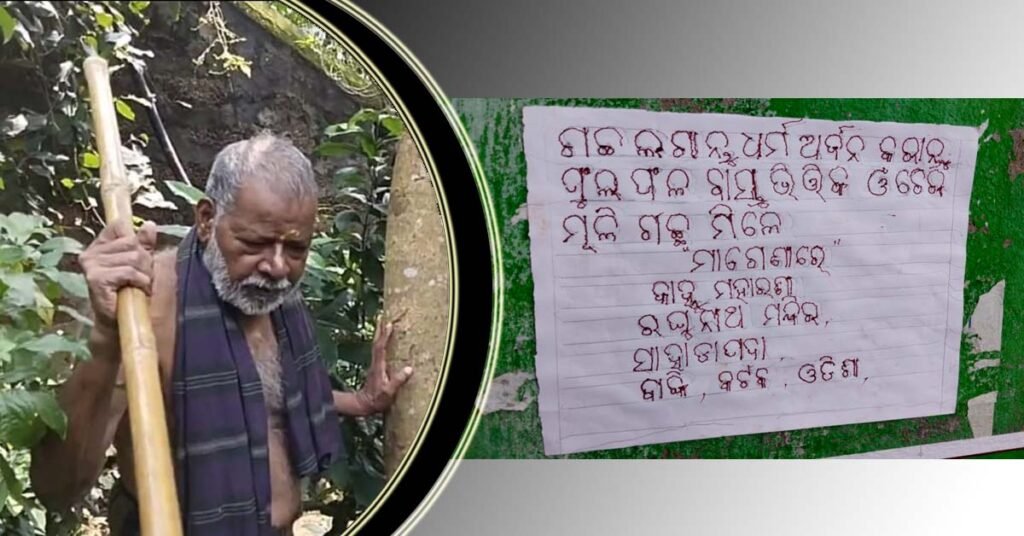 ଗଛ ଲଗାନ୍ତୁ ଧର୍ମ ଅର୍ଜନ କରନ୍ତୁ
ଫୁଲ ଫଳ ବାସ୍ତୁ ଭିତ୍ତିକ ଓ ଚେର
ମୂଳି ଗଛ ମିଳେ
"ମାଗଣାରେ"
କାହ୍ନୁ ମହାରଣା
ରଘୁନାଥ ମନ୍ଦିର,
ସାହାଡାପଦା,
ବାଙ୍କି, କଟକ, ଓଡିଶା,